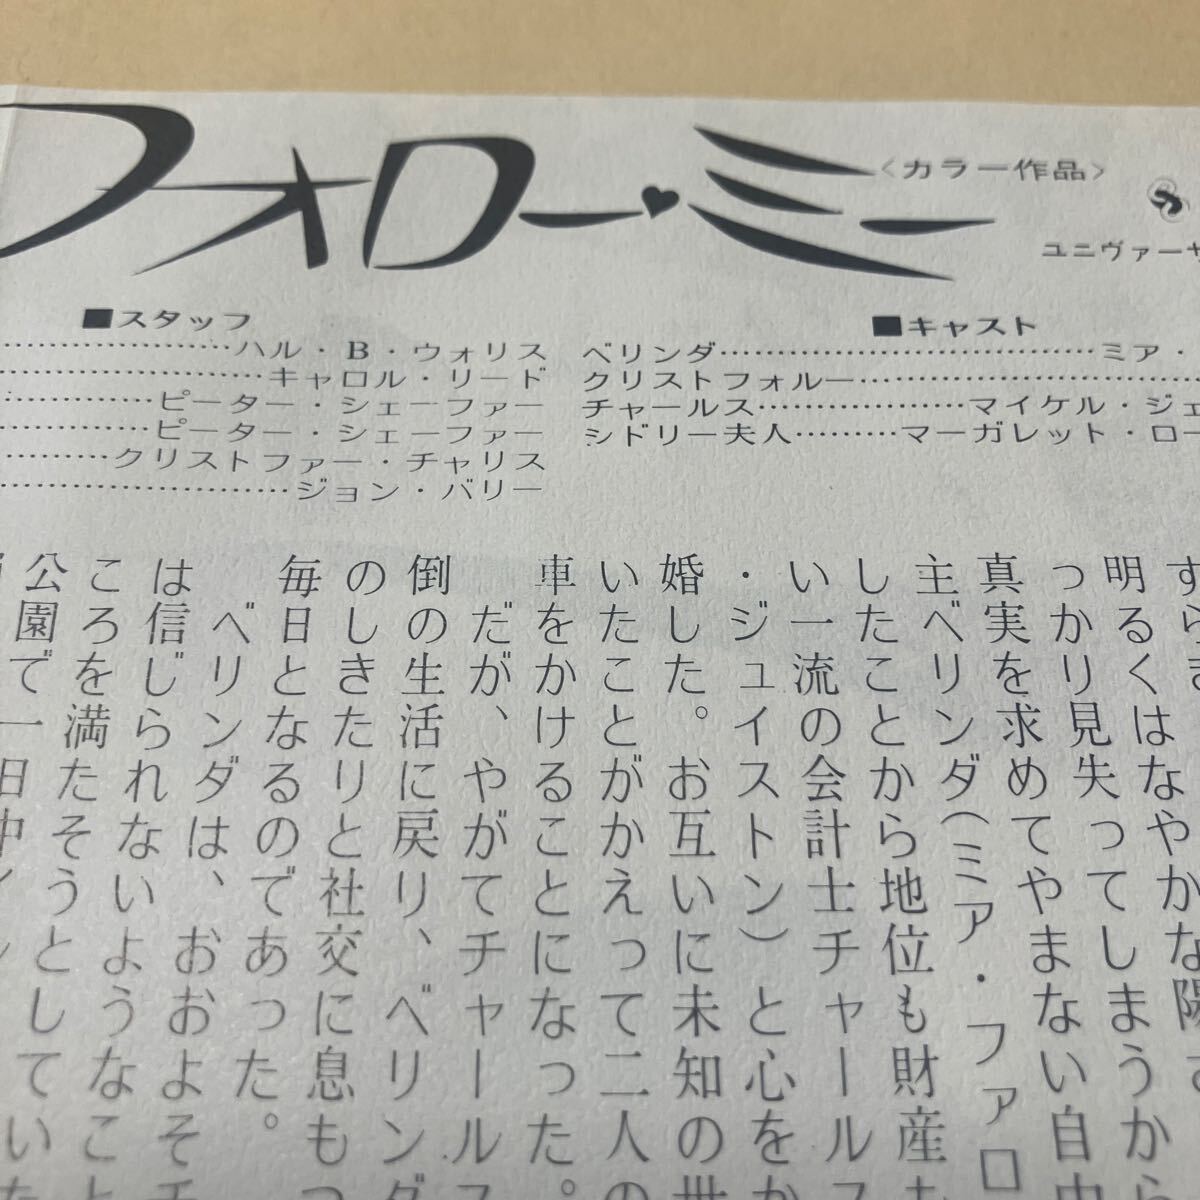 フォロー・ミー
<カラー作品>
ユニヴァーサ
■スタッフ
ハル・B・ウォリス
キャロル・リード
ピーター・シェーファー
ピーター・シェーファー
クリストファー・チャリス
ジョン・バリー
■キャスト
ベリンダ……ミア・
クリストフォルー……
チャールス……マイケル・ジェ
シドリー夫人……マーガレット・ロー
明るくはなやかな陽
っかり見失ってしまうから
真実を求めてやまない自由
主ベリンダ(ミア・ファロ
したことから地位も財産も
い一流の会計士チャールス
・ジェイストン)と心をか
婚した。お互いに未知の世
いたことがかえって二人の
車をかけることになった。
だが、やがてチャールス
倒の生活に戻り、ベリンダ
のしきたりと社交に息もつ
毎日となるのであった。
ベリンダは、おおよそチ
は信じられないようなこと
ころを満たそうとしていた
公園で一日中